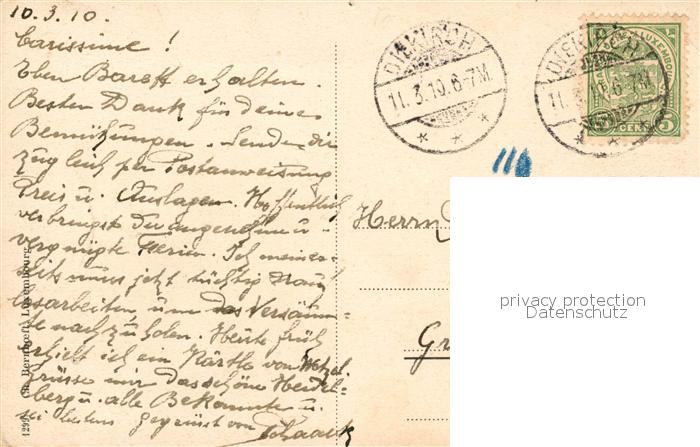 10.3.10.
Carissime!
Eben Barett erhalten.
Besten Dank für deine
Bemühungen. Sende dir
zugleich per Postanweisung
Preis u. Auslagen. Hoffentlich
verbringst du angenehme u.
vergnügte Ferien. Ich meiner=
seits muss jetzt tüchtig drauf
losarbeiten, um das Versäum=
te nachzuholen. Heute früh
erhielt ich ein Kärtle von Wetzel.
Grüsse mir das schöne Heidel=
berg u. alle Bekannte u.
sei bestens gegrüsst von
DIEKIRCH
11.3.10.6-7M.
DIEKIRCH
11.3.10.6-7M.
5 5
Herrn
privacy protection
Datenschutz
Gr
Ch. Bernhoeft, Luxembourg